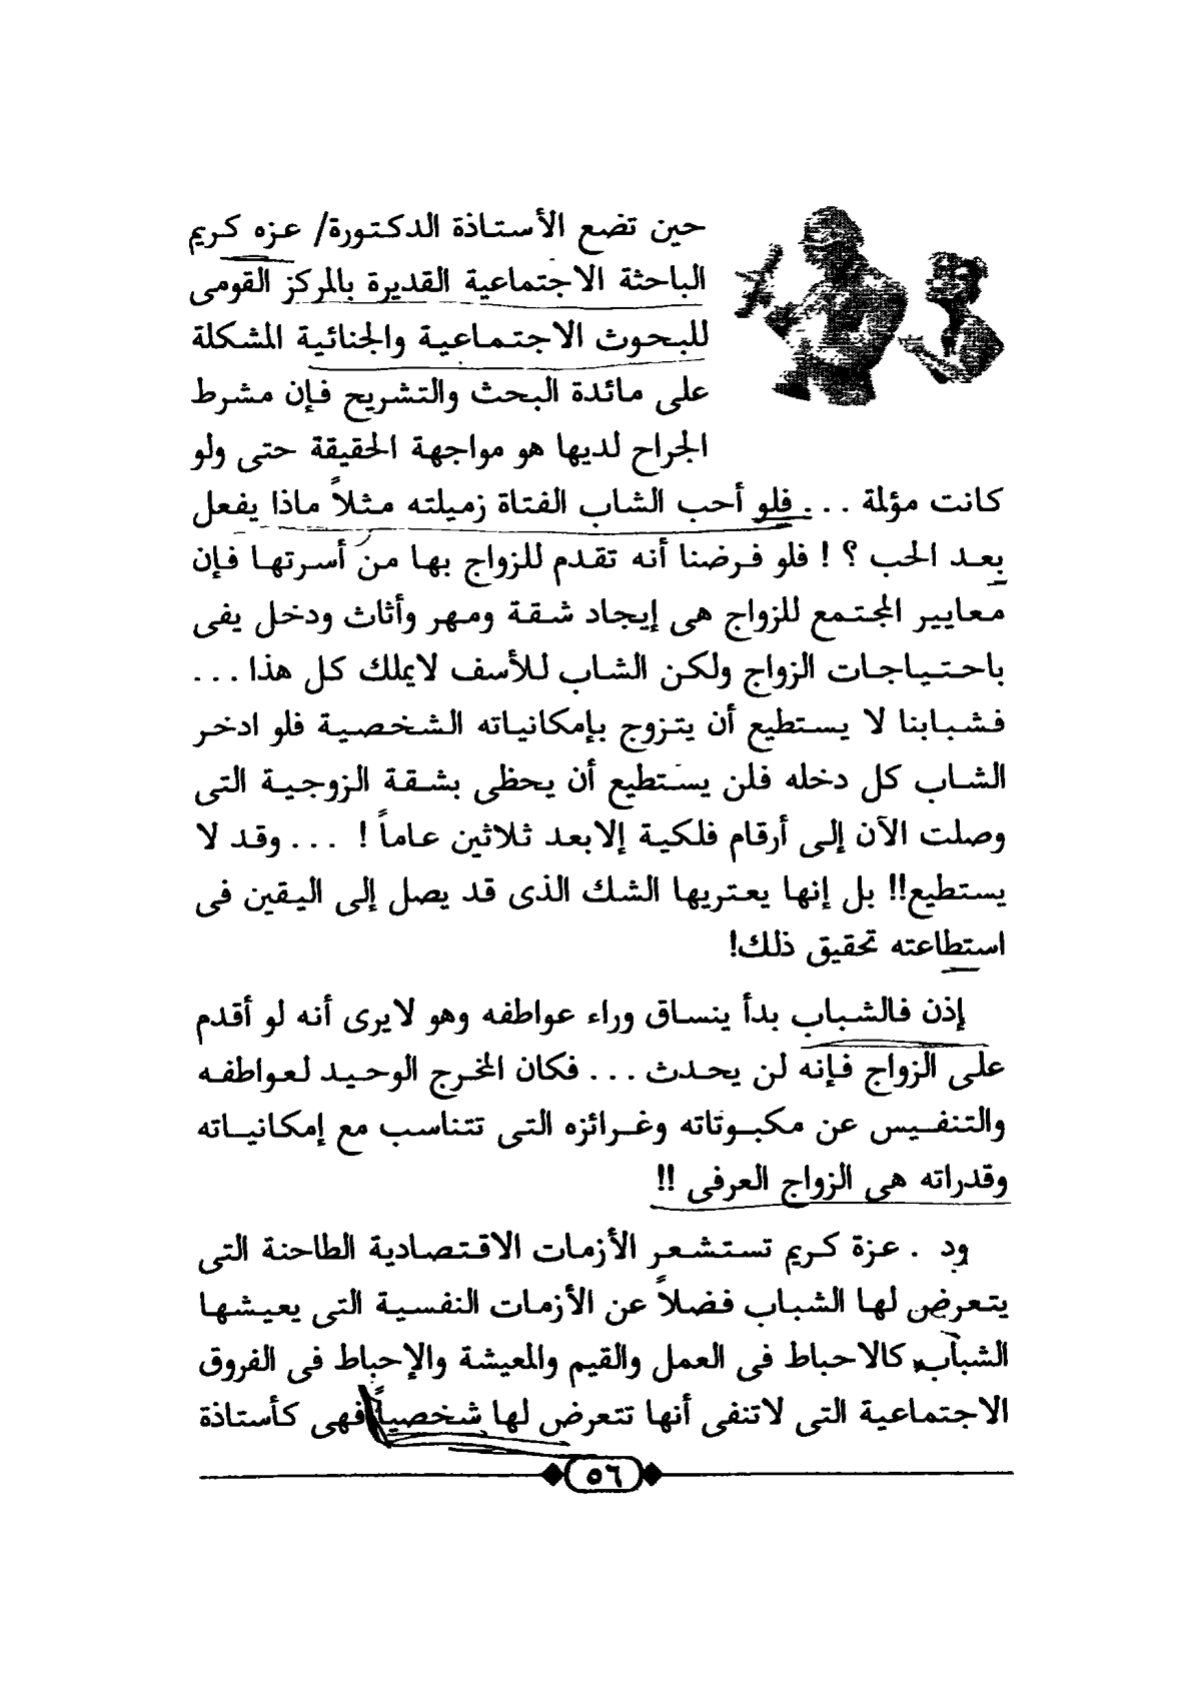 حين تضع الأستاذة الدكتورة/ عزه كريم
الباحثة الاجتماعية القديرة بالمركز القومى
للبحوث الاجتماعية والجنائية المشكلة
على مائدة البحث والتشريح فإن مشرط
الجراح لديها هو مواجهة الحقيقة حتى ولو
كانت مؤلمة ... فلو أحب الشاب الفتاة زميلته مثلاً ماذا يفعل
بعد الحب ؟ ! فلو فرضنا أنه تقدم للزواج بها من أسرتها فإن
معايير المجتمع للزواج هى إيجاد شقة ومهر وأثاث ودخل يفى
باحتياجات الزواج ولكن الشاب للأسف لايملك كل هذا ...
فشبابنا لا يستطيع أن يتزوج بإمكانياته الشخصية فلو ادخر
الشاب كل دخله فلن يستطيع أن يحظى بشقة الزوجية التى
وصلت الآن إلى أرقام فلكية إلابعد ثلاثين عاماً ! ... وقد لا
يستطيع!! بل إنها يعتريها الشك الذى قد يصل إلى اليقين فى
استطاعته تحقيق ذلك!
إذن فالشباب بدأ ينساق وراء عواطفه وهو لايرى أنه لو أقدم
على الزواج فإنه لن يحدث ... فكان المخرج الوحيد لعواطفه
والتنفيس عن مكبوتاته وغرائزه التى تتناسب مع إمكانياته
وقدراته هى الزواج العرفى !!
ود . عزة كريم تستشعر الأزمات الاقتصادية الطاحنة التى
يتعرض لها الشباب فضلاً عن الأزمات النفسية التى يعيشها
الشباب كالاحباط فى العمل والقيم والمعيشة والإحباط فى الفروق
الاجتماعية التى لاتنفى أنها تتعرض لها شخصياً فهى كأستاذة
٥٦